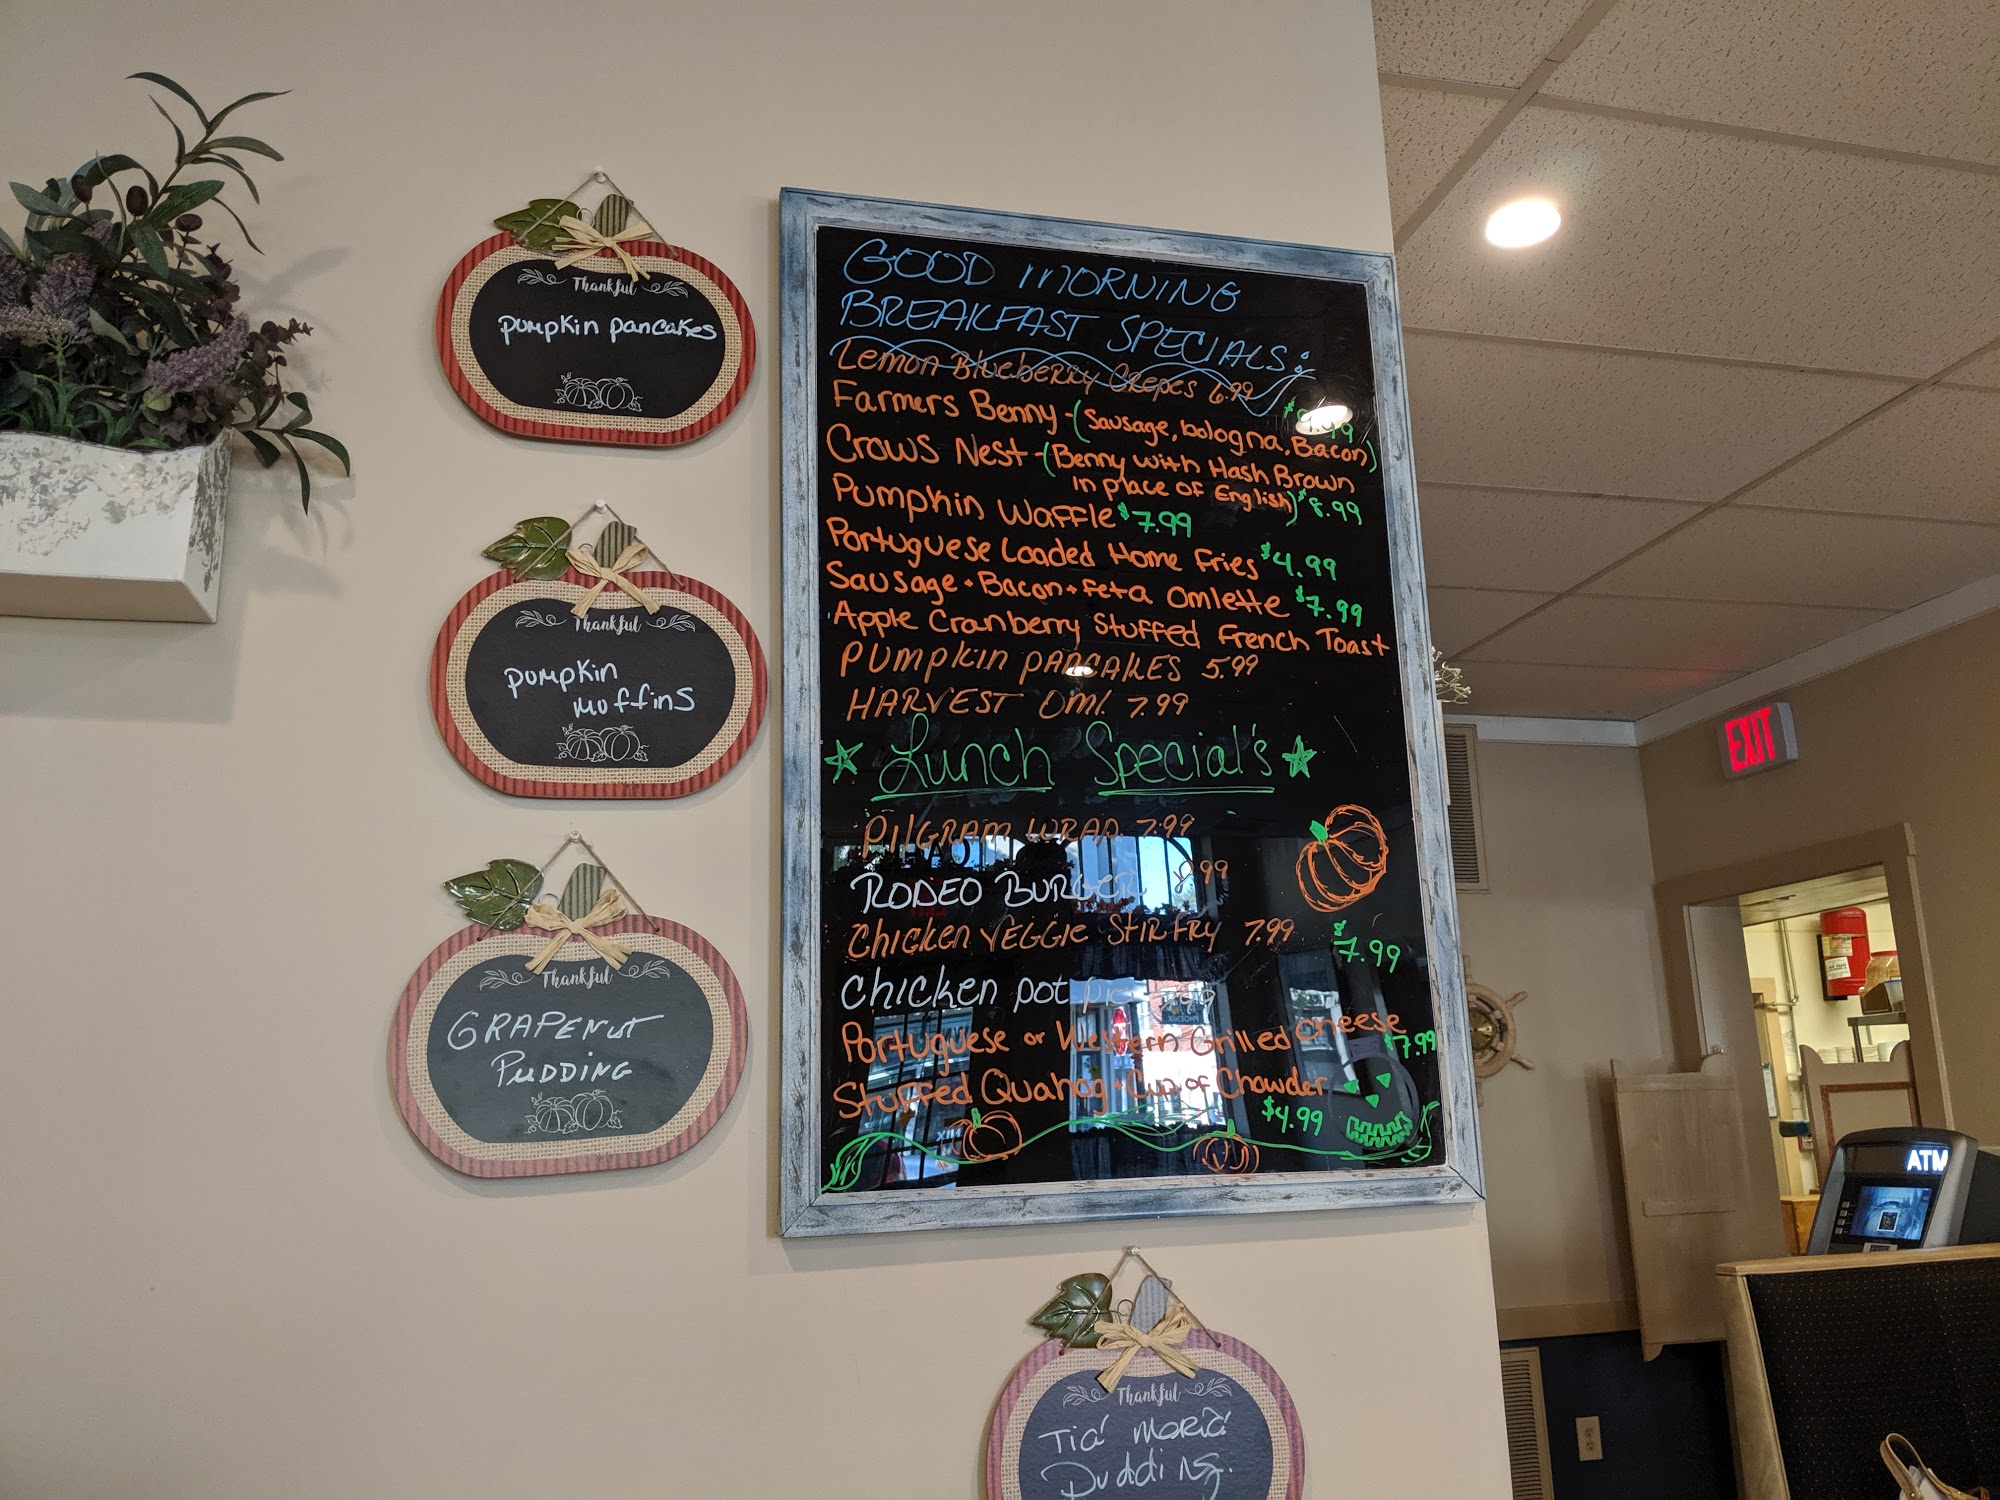 Thankful
pumpkin pancakes
Thankful
pumpkin
muffins
Thankful
GRAPENUT
PUDDING
GOOD MORNING
BREAKFAST SPECIALS:
Lemon Blueberry Crepes 6.99
Farmers Benny - (Sausage, bologna, Bacon)
Crows Nest - (Benny with Hash Brown
in place of English) $8.99
Pumpkin Waffle $7.99
Portuguese Loaded Home Fries $4.99
Sausage + Bacon + Feta Omlette $7.99
Apple Cranberry Stuffed French Toast
PUMPKIN PANCAKES 5.99
HARVEST OML. 7.99
Lunch Special's
PILGRAM WRAP 7.99
RODEO BURGER 8.99
CHICKEN VEGGIE STIR FRY 7.99
$7.99
CHICKEN POT PIE
Portuguese or Western Grilled Cheese
$7.99
Stuffed Quahog + Cup of Chowder
$4.99
Thankful
Tiá Mariá
Pudding.
EXIT
ATM